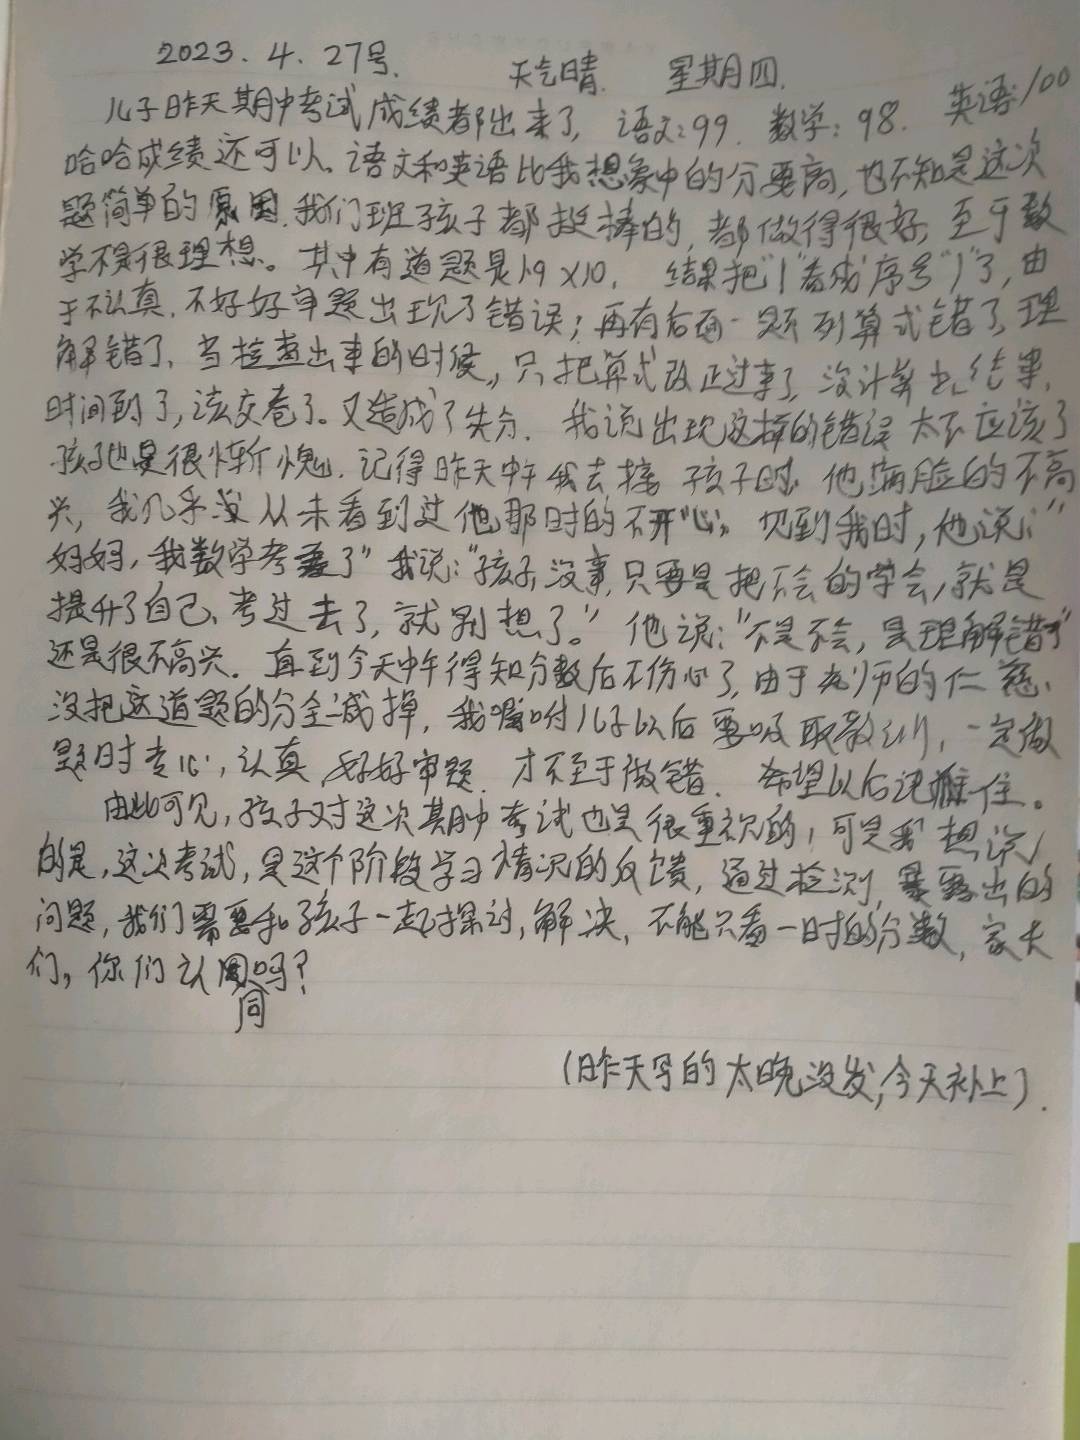 2023.4.27号. 天气晴 星期四.
儿子昨天期中考试成绩都出来了, 语文:99. 数学:98. 英语:100
哈哈成绩还可以、语文和英语比我想象中的分要高,也不知是这次
题简单的原因.我们班孩子都挺棒的,都做得很好,至于数
学不是很理想。其中有道题是19×10, 结果把"1"看成序号"1"了,由
于不认真.不好好审题出现了错误;再有后面一题列算式错了,理
解错了、当检查出来的时候,,只把算式改正过来了,没计算出结果.
时间到了,该交卷了。又造成了失分. 我说出现这样的错误太不应该了
孩子也是很惭愧.记得昨天中午我去接孩子时.他满脸的不高
兴,我几乎没从未看到过他那时的不开心。见到我时,他说:"
妈妈,我数学考了"我说:"孩子,没事,只要是把不会的学会,就是
提升了自己、考过去了,就别想了。"他说:"不是不会,是理解错"
还是很不高兴. 直到今天中午得知分数后不伤心了,由于老师的仁慈、
没把这道题的分全减掉,我嘱咐儿子以后要吸取教训,一定做
题时专心,认真 好好审题. 才不至于做错. 希望以后记住。
由此可见,孩子对这次期中考试也是很重视的,可是我想说
的是,这次考试,是这个阶段学习情况的反馈,通过检测,暴露出的
问题,我们需要和孩子一起探讨,解决,不能只看一时的分数,家长
们,你们认同吗?
(昨天写的太晚没发,今天补上).